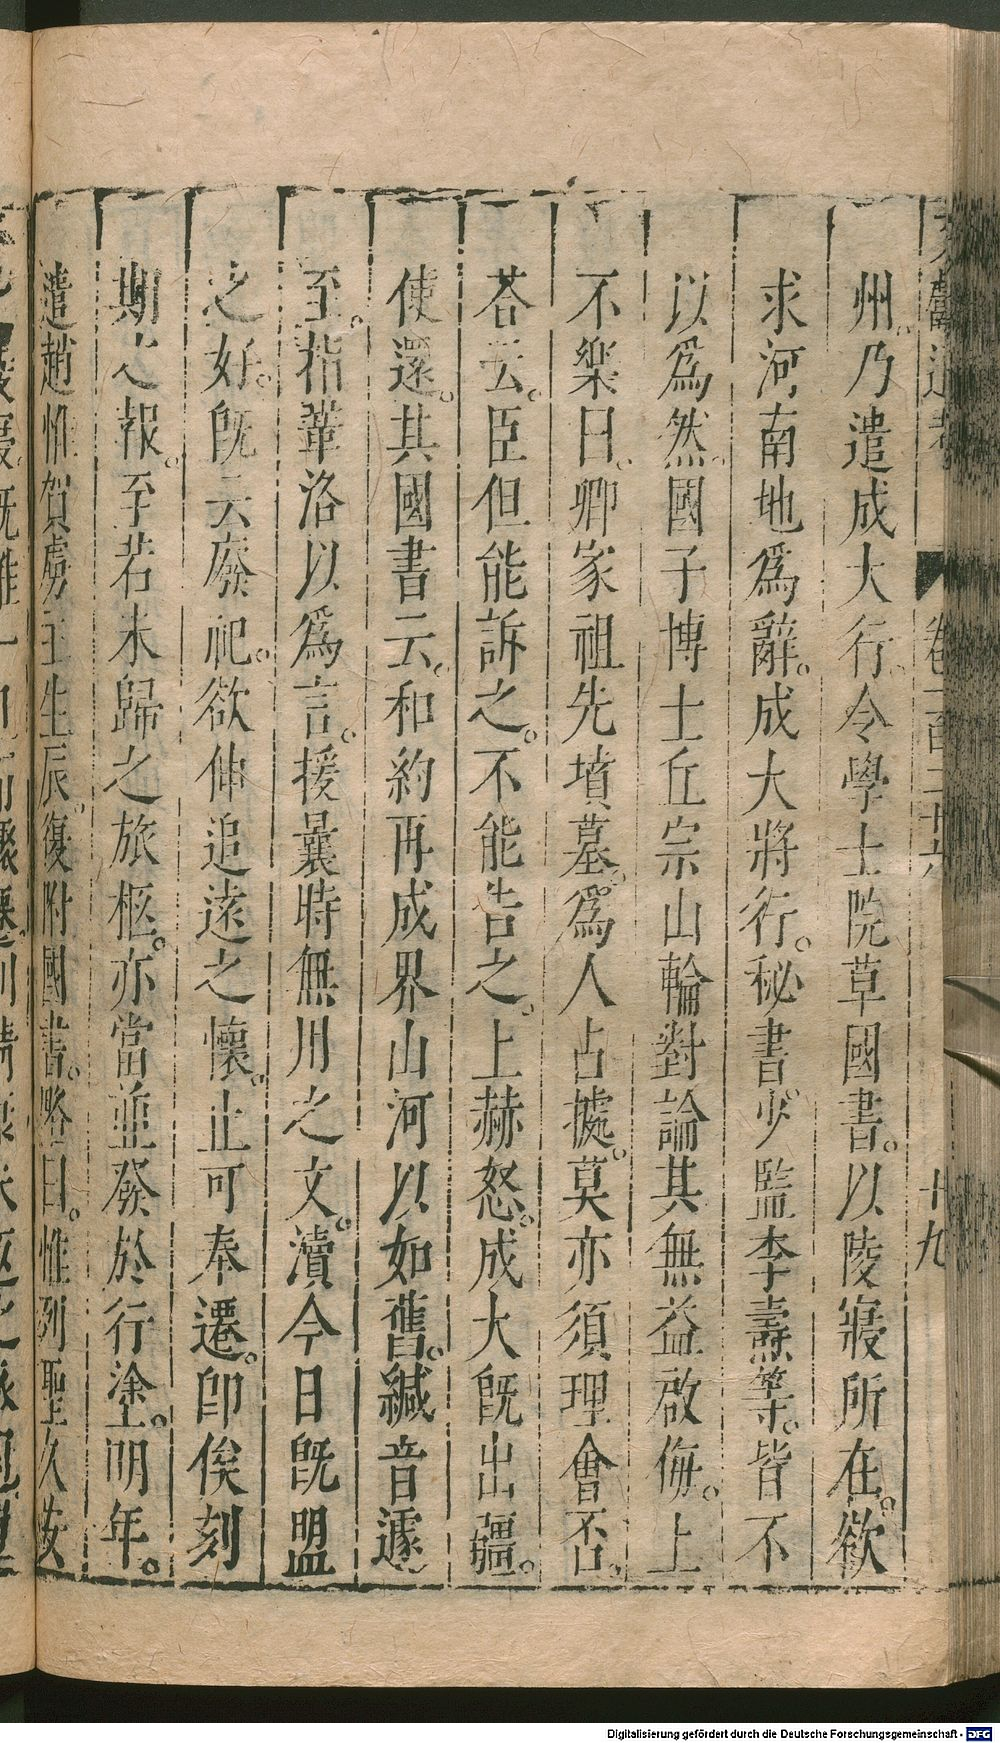 州。乃遣成大行。令學士院草國書。以陵寢所在。欲
求河南地爲辭。成大將行。秘書少監李燾等。皆不
以爲然。國子博士丘宗山輪對論其無益啟侮。上
不樂曰。卿家祖先墳墓。爲人占據。莫亦須理會否。
荅云。臣但能訴之。不能告之。上赫怒。成大旣出疆。
使還。其國書云。和約再成界山河以如舊。緘音遽
至。指鞏洛以爲言。援曩時無用之文。瀆今日旣盟
之好。旣云廢祀。欲伸追遠之懷。止可奉遷。卽俟刻
期之報。至若未歸之旅柩。亦當並發於行塗。明年。
遣趙惟賀虜主生辰。復附國書。略曰。惟列聖久安
卷一百二十六 十九
Digitalisierung gefördert durch die Deutsche Forschungsgemeinschaft - DFG